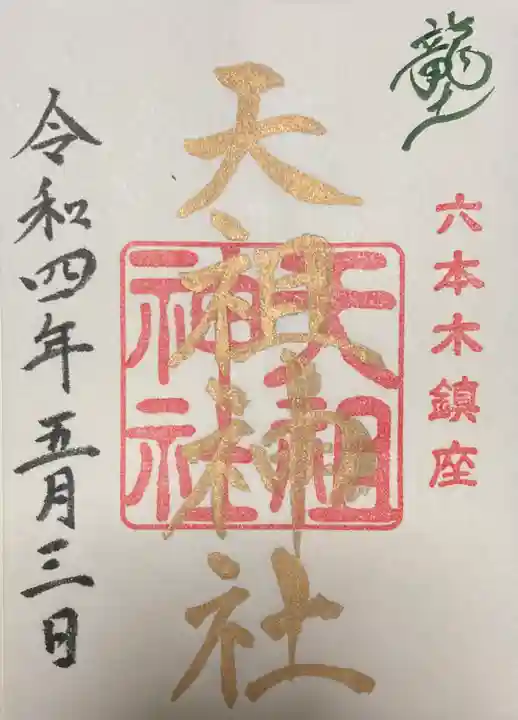 龍土
六本木鎮座
天祖神社
天祖神社
令和四年五月三日